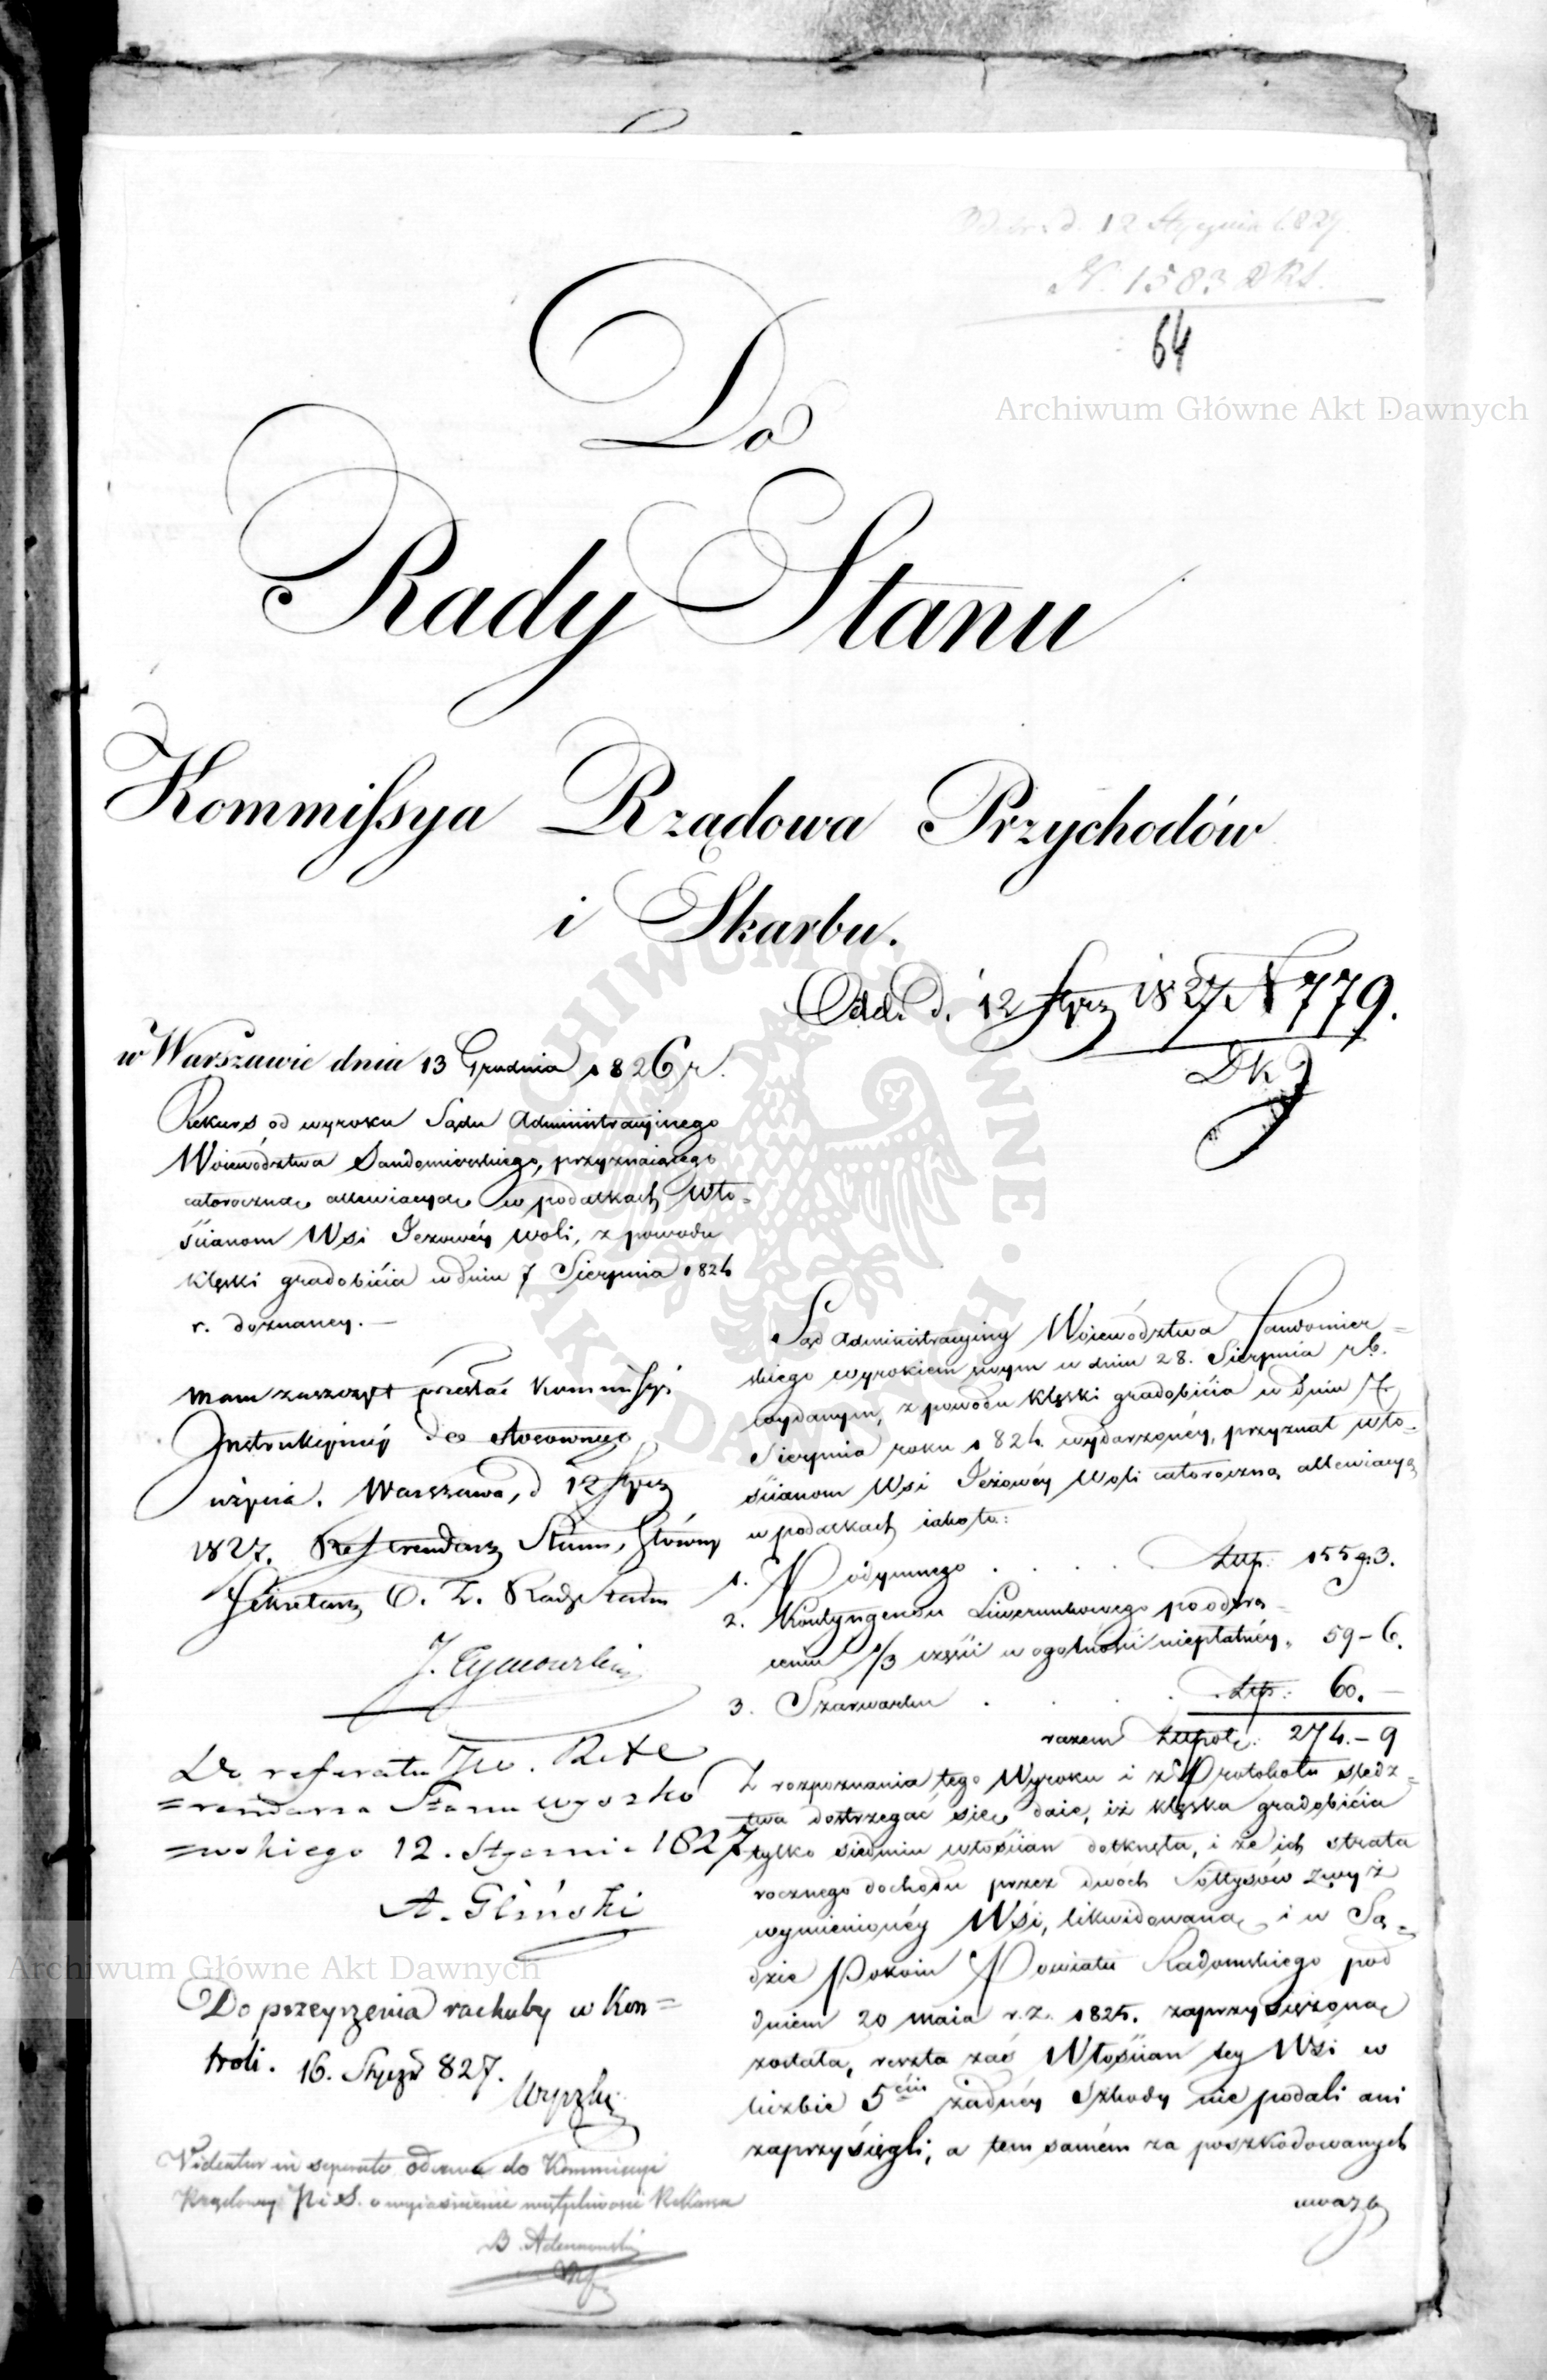 d. 12 Stycznia 1827.
N. 1583
64
Archiwum Główne Akt Dawnych
Do
Rady Stanu
Kommissya Rządowa Przychodów
i Skarbu.
Odd. d. 12 Stycz 1827 N 779.
w Warszawie dnia 13 Grudnia 1826 r.
Rekurs od wyroku Sądu Administracyjnego
Woiewództwa Sandomierskiego, przyznaiącego
całoroczną allewiacyą w podatkach Wło-
ścianom Wsi Jeżowéy Woli, z powodu
klęski gradobicia w dniu 7 Sierpnia 1824
r. doznaney. —
Mam zaszczyt przesłać Kommissyi
Instrukcyinéy do stosownego
użycia. Warszawa, d 12 Stycz
1827. Referendarz Stanu, Główny
Sekretarz Rady Stanu
J. Tymowski
Do referatu JW. Refe
=rendarza Stanu Wyczko
=wskiego 12. Stycznia 1827
A. Gliński
Do przeyrzenia rachuby w Kon=
troli. 16. Stycz 827.
Videatur in separato odezwa do Kommissyi
Rządowey P i S. o wyiaśnienie wątpliwości Rekursu
Sąd Administracyiny Woiewództwa Sandomier=
skiego wyrokiem swym w dniu 28. Sierpnia r. b.
wydanym, z powodu klęski gradobicia w dniu 7.
Sierpnia roku 1824. wydarzonéy, przyznał wło-
ścianom Wsi Jeżowéy Woli całoroczną allewiacyą
w podatkach iako to:
1. Podymnego . . . . Złłp. 155 g. 3.
2. Kontyngensu Liwerunkowego po odtrą-
ceniu 1/3 części w ogólności niepłatnéy „ 59 – 6.
3. Szarwarku . . . Złłp. 60. —
razem Złłpol. 274. – 9
Z rozpoznania tego Wyroku i z Protokołu śledz=
twa dostrzegać się daie, iż klęska gradobicia
tylko siedmiu włościan dotknęła, i że ich strata
rocznego dochodu przez dwóch Sołtysów zwyż
wymienionéy Wsi, likwidowaną i w Są=
dzie Pokoiu Powiatu Radomskiego pod
dniem 20 maia r. z. 1825. zaprzysiężoną
została, reszta zaś Włościan tey Wsi w
liczbie 5ciu żadnéy szkody nie podali ani
zaprzysięgli, a tem samém za poszkodowanych
uważa
Archiwum Główne Akt Dawnych